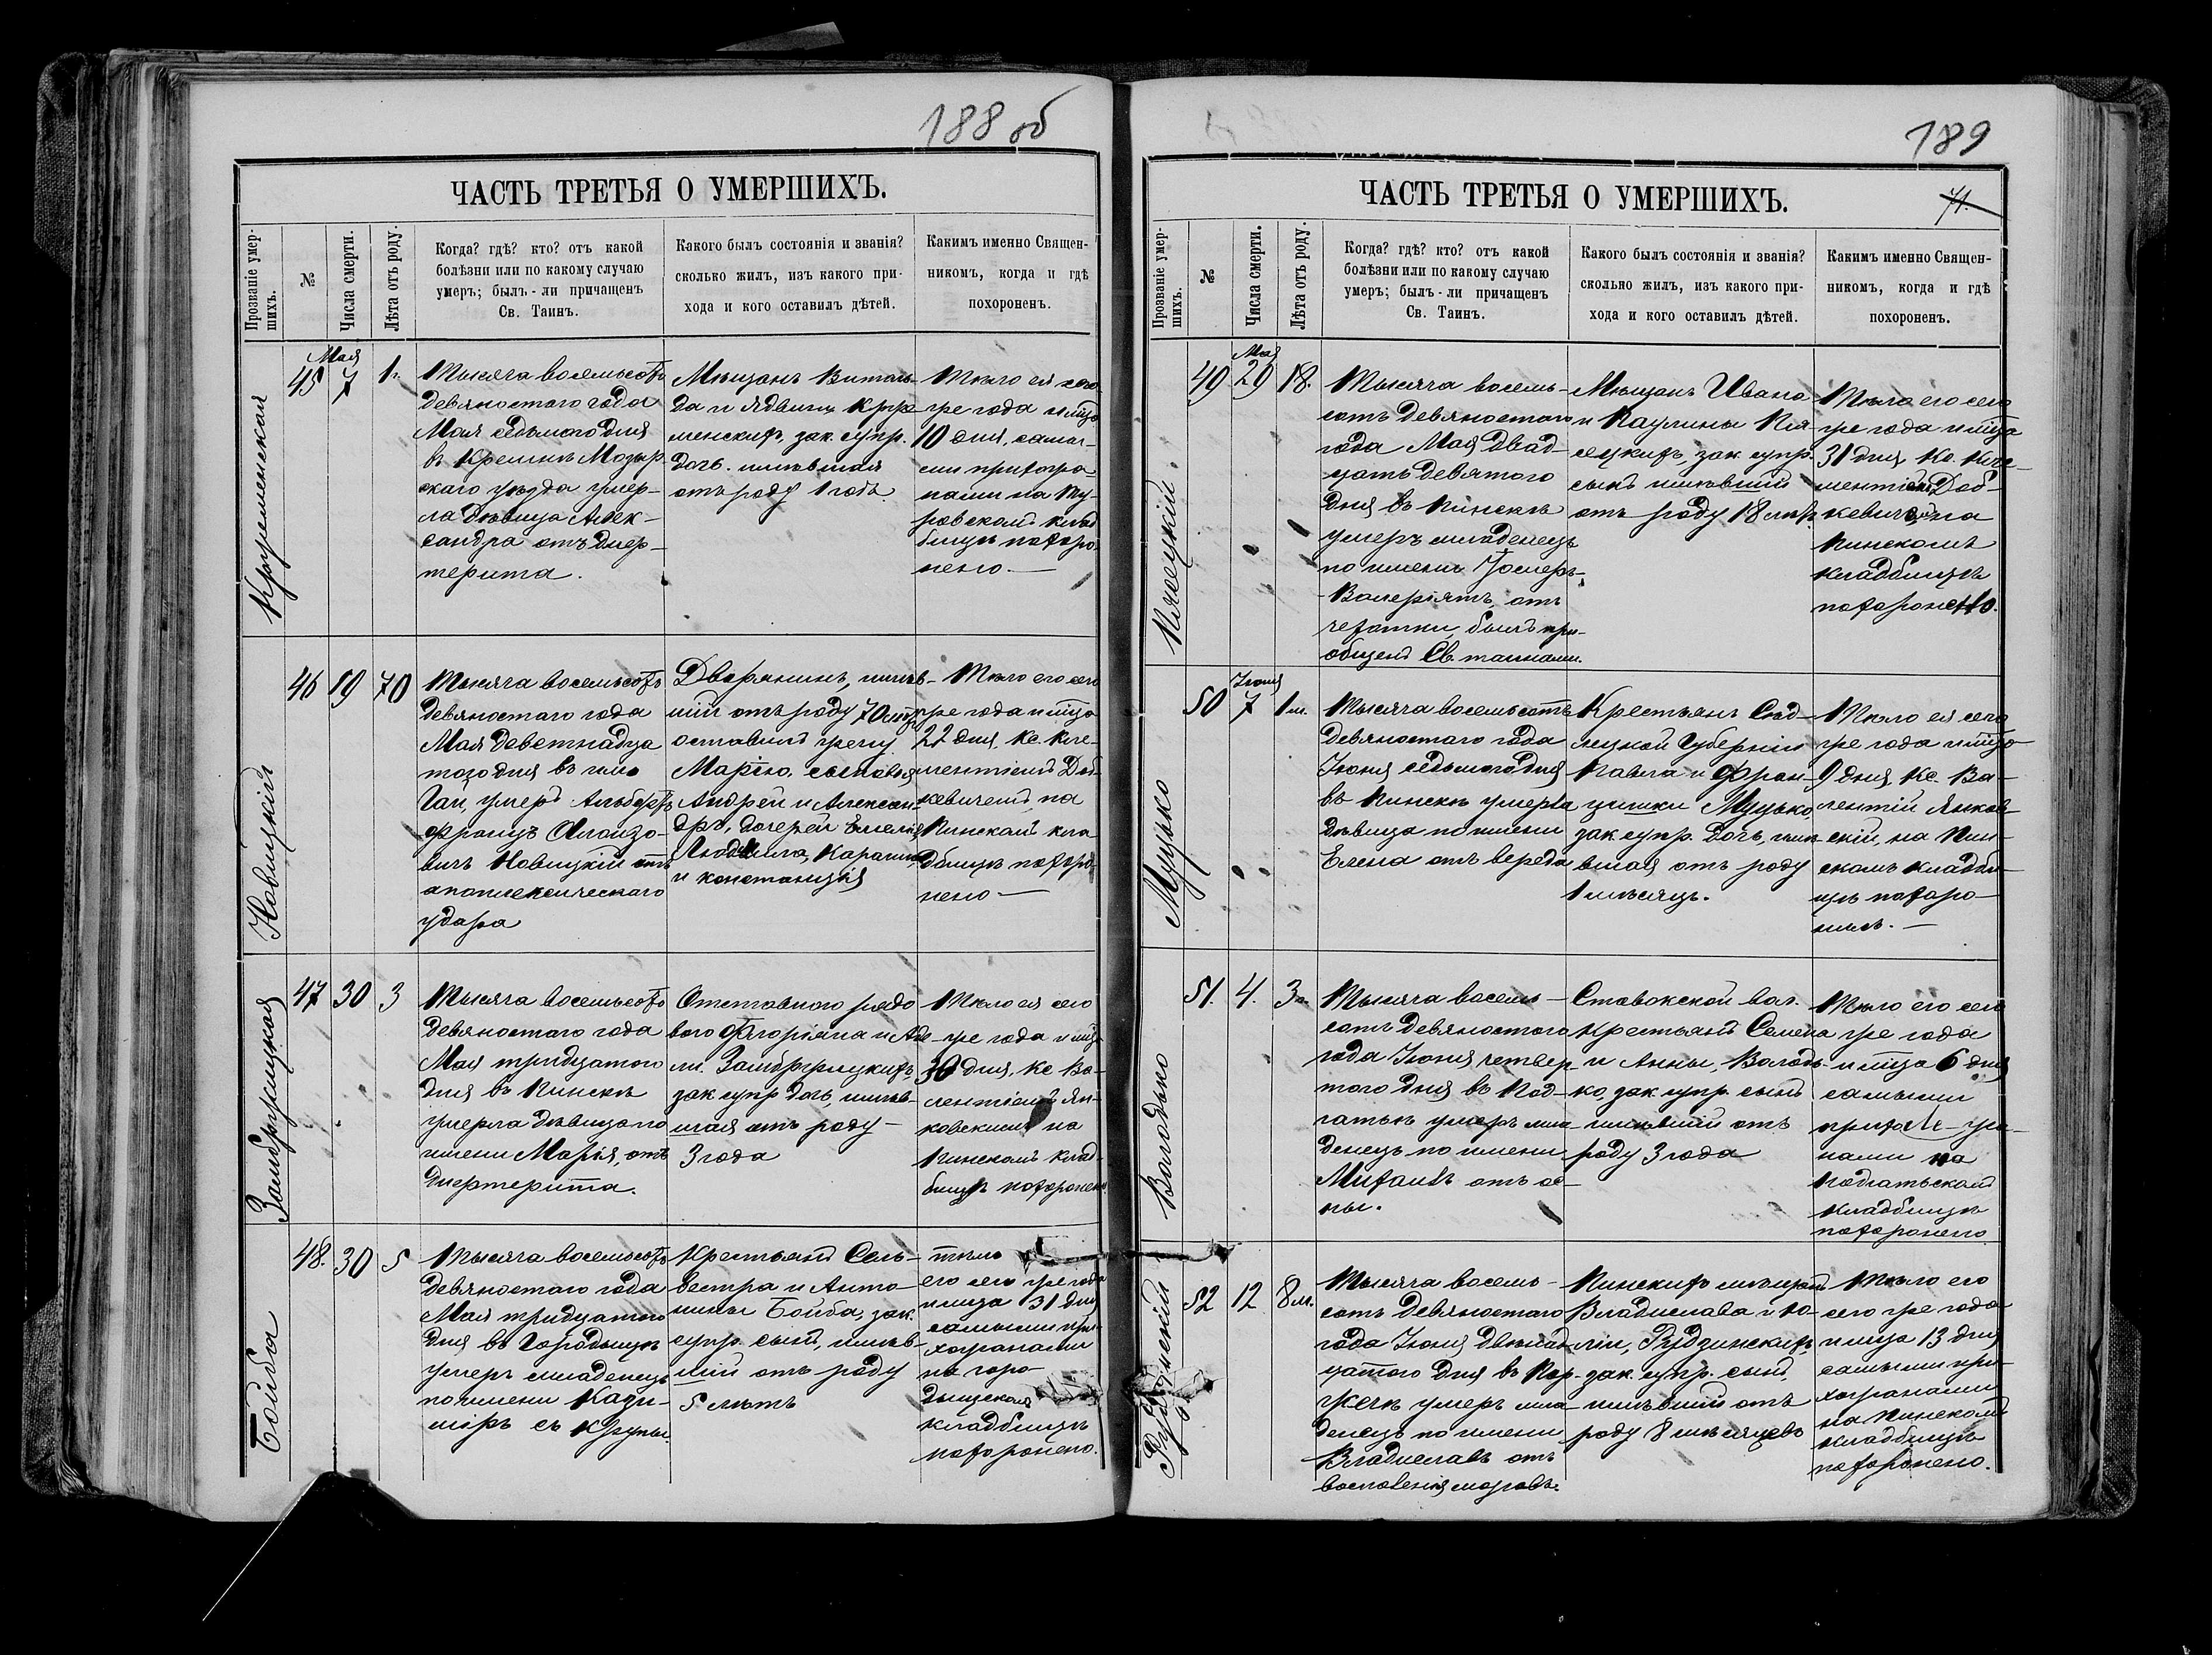 188 об
ЧАСТЬ ТРЕТЬЯ О УМЕРШИХЪ.
Прозваніе умер-
шихъ.
№
Числа смерти.
Лѣта отъ роду.
Когда? гдѣ? кто? отъ какой
болѣзни или по какому случаю
умеръ; былъ-ли причащенъ
Св. Таинъ.
Какого былъ состоянія и званія?
сколько жилъ, изъ какого при-
хода и кого оставилъ дѣтей.
Какимъ именно Священ-
никомъ, когда и гдѣ
похороненъ.
45
Мая
7
1.
Тысяча восемьсотъ
девяностаго года
Мая седьмого дня
въ Кремнѣ Мозыр
скаго уѣзда умер-
ла дѣвица Алек-
сандра отъ диф-
терита.
Мѣщанъ Виталь-
да и Ядвиги
зак. супр.
дочь. имѣвшая
отъ роду 1 годъ.
Тѣло ея сего
же года и мца
10 дня, самы-
ми прихожа
нами на Ту-
ровскомъ клад
бищѣ похоро-
нено.—
Новицкій
46
19
70
Тысяча восемьсотъ
девяностаго года
Мая девятнадца
того дня въ им.
Гаи, умеръ Альбертъ
Францъ
вичъ Новицкій отъ
апоплексическаго
удара
Дворянинъ, имѣв-
шій отъ роду 70 лѣтъ
оставилъ жену
Марію, сыновья
Андрей и Алексан-
дръ, дочерей Емелія
Людвила, Каролина
и Констанція
Тѣло его сего
же года и мца
22 дня, кс. Кле-
ментіемъ Доб-
кевичемъ, на
Пинскомъ кла
дбищѣ похоро-
нено—
Замбржицкая
47
30
3
Тысяча восемьсотъ
девяностаго года
Мая тридцатого
дня въ Пинскѣ
умерла дѣвица по
имени Марія, отъ
дифтерита.
Отставного рядо
вого Флоріяна и Аде-
ли. Замбржицкихъ,
зак супр дочь, имѣв-
шая отъ роду—
3 года
Тѣло ея сего
же года и мца
30 дня, кс Ва-
лентіемъ Ян-
ковскимъ на
Пинскомъ клад-
бищѣ похоронено.
Бойба
48.
30
5
Тысяча восемьсотъ
девяностаго года
Мая тридцатого
дня въ Городищѣ
умеръ младенецъ
по имени Кази-
міръ съ крупы.
Крестьянъ Силь-
вестра и Анто-
нины Бойба, зак.
супр. сынъ, имѣв-
шій отъ роду
5 лѣтъ
тѣло
его сего же года
и мца 31 дня
самыми при-
хожанами
на горо-
дищскомъ
кладбищѣ
похоронено.
189
ЧАСТЬ ТРЕТЬЯ О УМЕРШИХЪ.
71.
Прозваніе умер-
шихъ.
№
Числа смерти.
Лѣта отъ роду.
Когда? гдѣ? кто? отъ какой
болѣзни или по какому случаю
умеръ; былъ-ли причащенъ
Св. Таинъ.
Какого былъ состоянія и званія?
сколько жилъ, изъ какого при-
хода и кого оставилъ дѣтей.
Какимъ именно Священ-
никомъ, когда и гдѣ
похороненъ.
49
Мая
29
18.
Тысяча восемь-
сотъ девяностого
года Мая двад-
цать девятого
дня въ Пинскѣ
умеръ младенецъ
по имени
Валеріянъ, отъ
чахотки, былъ при-
общенъ Св. таинами.
Мѣщанъ Ивана
и Паулины
зак. супр.
сынъ имѣвшій
отъ роду 18 лѣтъ
Тѣло его сего
же года и мца
31 дня Кс. Кле-
ментіемъ Доб-
кевичемъ на
Пинскомъ
кладбищѣ
похоронено.
Муцько
50
Іюня
7
1 м.
Тысяча восемьсотъ
девяностаго года
Іюня седьмого дня
въ Пинскѣ умерла
дѣвица по имени
Елена отъ вереда
Крестьянъ Сѣд-
лецкой губерніи
Павла и Фран-
цишки Муцько,
зак. супр. дочь, имѣ-
вшая отъ роду
1 мѣсяцъ.
Тѣло ея сего
же года и мца
9 дня, Кс. Ва-
лентій Янков-
скій, на Пин-
скомъ кладби-
щѣ похоро-
нилъ.—
Володько
51.
4.
3
Тысяча восемь-
сотъ девяностого
года Іюня четвер
того дня въ Под-
гатьѣ умеръ мла-
денецъ по имени
Михаилъ отъ ос-
пы.
Ставокской вол.
Крестьянъ Семена
и Анны, Володь-
ко, зак. супр. сынъ
имѣвшій отъ
роду 3 года
Тѣло его сего
же года
и мца 6 дня
самыми
прихо-жа-
нами на
Подгатьскомъ
кладбищѣ
похоронено
52
12
8 м.
Тысяча восемь-
сотъ девяностаго
года Іюня двѣнад-
цатого дня въ Пар-
умеръ мла-
денецъ по имени
Владиславъ отъ
воспаленія мозговъ.
Пинскихъ мѣщанъ
Владислава и Ю-
ліи, Рудзинскихъ,
зак. супр. сынъ,
имѣвшій отъ
роду 8 мѣсяцевъ
Тѣло его
сего же года
и мца 13 дня
самыми при-
хожанами
на Пинскомъ
кладбищѣ
похоронено.